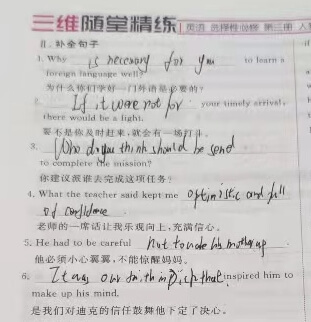 三维随堂精练 英语 选择性必修 第三册 人
Ⅱ. 补全句子
1. Why is necessary for you to learn a
foreign language well?
为什么你们学好一门外语是必要的?
2. If it were not for your timely arrival,
there would be a fight.
要不是你及时赶来,就会有一场打斗。
3. Who do you think should be send
to complete the mission?
你建议派谁去完成这项任务?
4. What the teacher said kept me optimistic and full
of confidence.
老师的一席话让我乐观向上,充满信心。
5. He had to be careful not to wake his mother up.
他必须小心翼翼,不能惊醒妈妈。
6. It was our in that inspired him to
make up his mind.
是我们对迪克的信任鼓舞他下定了决心。